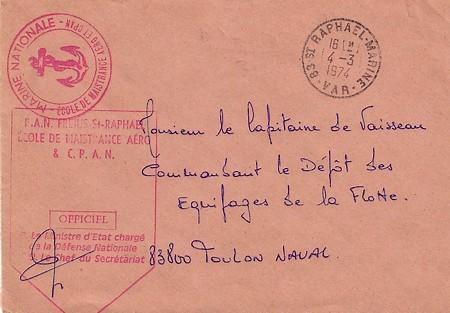 MARINE NATIONALE - ÉCOLE DE MAISTRANCE AERO ET CPAN
83 ST RAPHAEL-MARINE - VAR
16 H
4 -3
1974
B.A.N. FREJUS-St-RAPHAEL
ÉCOLE DE MAISTRANCE AÉRO
& C.P.A.N.
OFFICIEL
Le Ministre d'Etat chargé
de la Défense Nationale
Le Chef du Secrétariat
Monsieur le Capitaine de Vaisseau
Commandant le Dépôt des
Equipages de la Flotte.
83800 TOULON NAVAL.